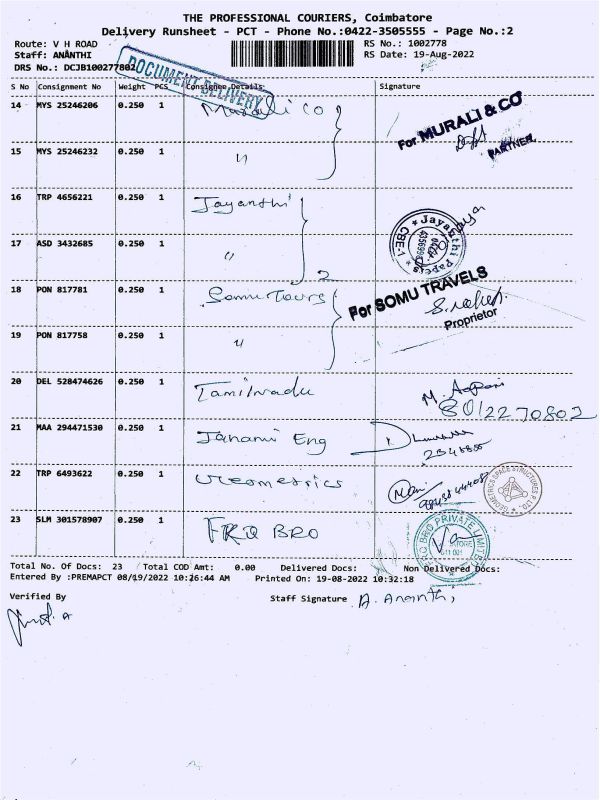 THE PROFESSIONAL COURIERS, Coimbatore
Delivery Runsheet - PCT - Phone No.:0422-3505555 - Page No.:2
Route: V H ROAD RS No.: 1002778
Staff: ANANTHI RS Date: 19-Aug-2022
DRS No.: DCJB100277802
DOCUMENT DELIVERY
S No Consignment No Weight PCS Consignee Details Signature
14 MYS 25246206 0.250 1 Murali Co
For MURALI & CO
PARTNER.
15 MYS 25246232 0.250 1 "
16 TRP 4656221 0.250 1 Jayanthi
Jayanthi Papers CBE-1
17 ASD 3432685 0.250 1 "
2
18 PON 817781 0.250 1 Somu Tours
For SOMU TRAVELS
Proprietor
19 PON 817758 0.250 1 "
20 DEL 528474626 0.250 1 Tamilnadu
8012270802
21 MAA 294471530 0.250 1 Janami Eng
22 TRP 6493622 0.250 1 Geometrics
GEOMETRICS SPACE STRUCTURES P LTD.
23 SLM 301578907 0.250 1 FRQ BRO
FRQ BRO PRIVATE LIMITED
641 001
Total No. Of Docs: 23 Total COD Amt: 0.00 Delivered Docs: Non Delivered Docs:
Entered By :PREMAPCT 08/19/2022 10:26:44 AM Printed On: 19-08-2022 10:32:18
Verified By Staff Signature A. Ananthi,